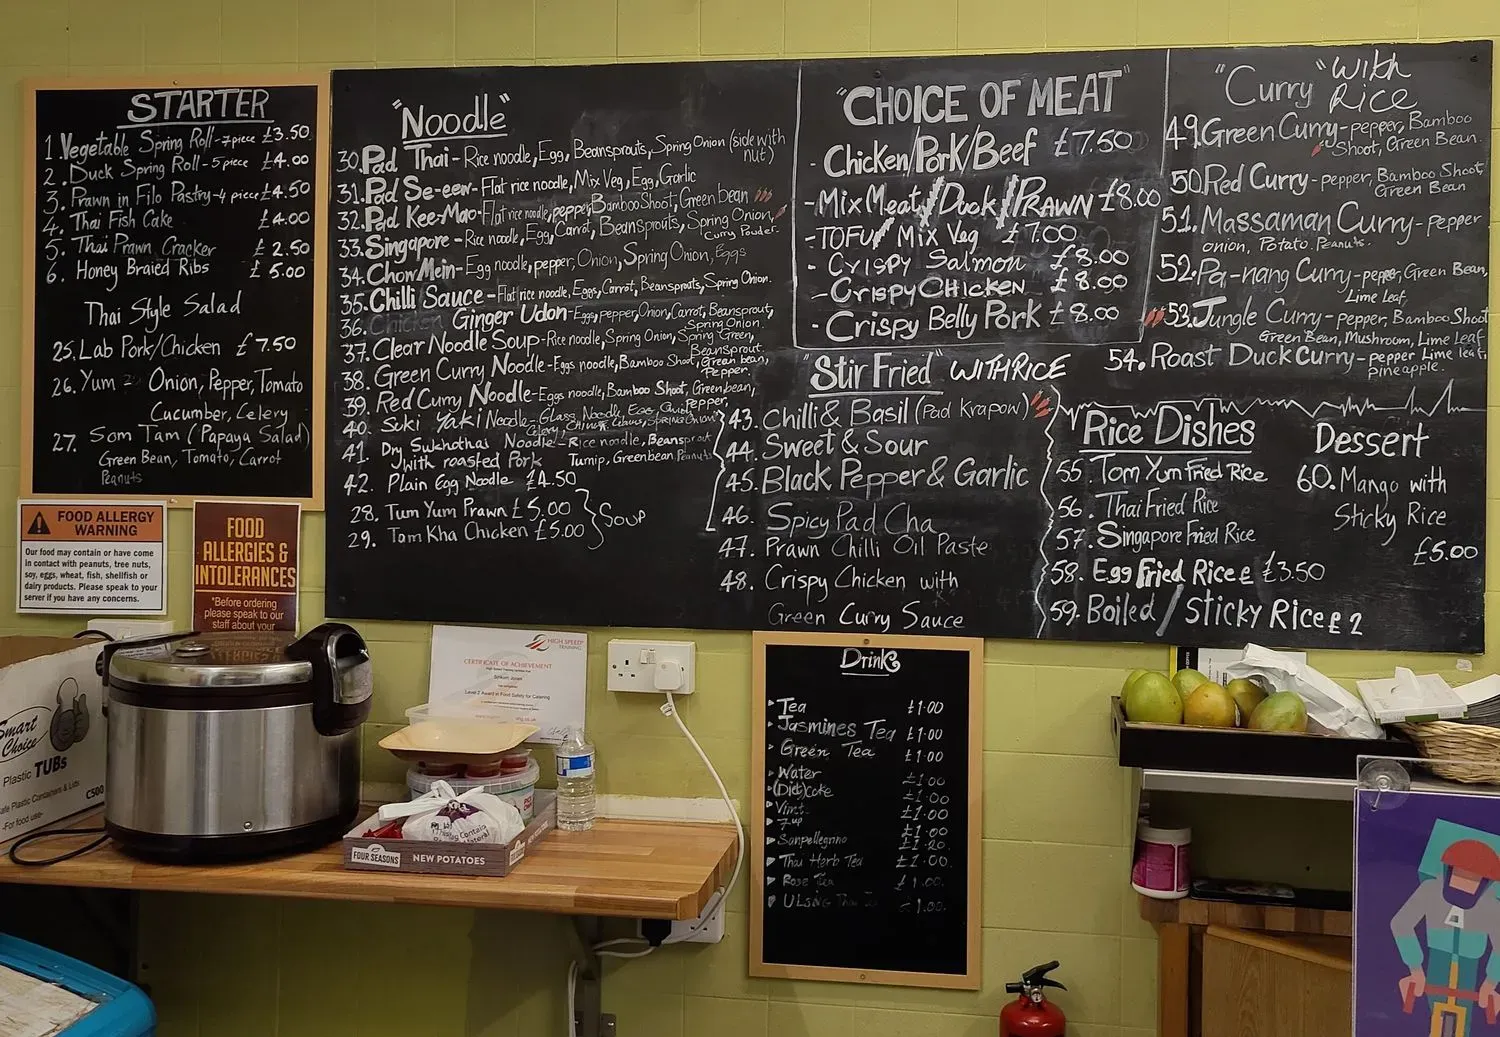 STARTER
1. Vegetable Spring Roll - 7 piece £3.50
2. Duck Spring Roll - 5 piece £4.00
3. Prawn in Filo Pastry - 4 piece £4.50
4. Thai Fish Cake £4.00
5. Thai Prawn Cracker £2.50
6. Honey Braied Ribs £5.00
Thai Style Salad
25. Lab Pork/Chicken £7.50
26. Yum = Onion, Pepper, Tomato
Cucumber, Celery
27. Som Tam (Papaya Salad)
Green Bean, Tomato, Carrot
Peanuts
"Noodle"
30. Pad Thai - Rice noodle, Egg, Beansprouts, Spring Onion (side with
nut)
31. Pad Se-eew - Flat rice noodle, Mix Veg, Egg, Garlic
32. Pad Kee-Mao - Flat rice noodle, pepper, Bamboo Shoot, Green bean
33. Singapore - Rice noodle, Egg, Carrot, Beansprouts, Spring Onion,
Curry Powder.
34. Chow Mein - Egg noodle, pepper, Onion, Spring Onion, Eggs
35. Chilli Sauce - Flat rice noodle, Eggs, Carrot, Beansprouts, Spring Onion.
36. Chicken Ginger Udon - Eggs, pepper, Onion, Carrot, Beansprout,
Spring Onion.
37. Clear Noodle Soup - Rice noodle, Spring Onion, Spring Green,
Beansprout.
38. Green Curry Noodle - Eggs noodle, Bamboo Shoot, Green bean,
Pepper.
39. Red Curry Noodle - Eggs noodle, Bamboo Shoot, Green bean,
Pepper,
40. Suki Yaki Noodle - Glass Noodle, Egg,
41. Dry Sukhothai Noodle - Rice noodle, Beansprout
with roasted Pork Turnip, Greenbean, Peanuts
42. Plain Egg Noodle £4.50
28. Tum Yum Prawn £5.00
29. Tom Kha Chicken £5.00
Soup
"CHOICE OF MEAT"
- Chicken/Pork/Beef £7.50
- Mix Meat/Duck/PRAWN £8.00
- TOFU/Mix Veg £7.00
- Crispy Salmon £8.00
- Crispy CHICKEN £8.00
- Crispy Belly Pork £8.00
"Stir Fried" WITH RICE
43. Chilli & Basil (Pad Krapow)
44. Sweet & Sour
45. Black Pepper & Garlic
46. Spicy Pad Cha
47. Prawn Chilli Oil Paste
48. Crispy Chicken with
Green Curry Sauce
"Curry" with
Rice
49. Green Curry - pepper, Bamboo
Shoot, Green Bean.
50. Red Curry - pepper, Bamboo Shoot,
Green Bean
51. Massaman Curry - Pepper
onion, Potato, Peanuts.
52. Pa-nang Curry - pepper, Green Bean,
Lime leaf,
53. Jungle Curry - pepper, Bamboo Shoot
Green Bean, Mushroom, Lime leaf
54. Roast Duck Curry - pepper Lime leaf,
pineapple.
Rice Dishes
55 Tom Yum Fried Rice
56. Thai Fried Rice
57. Singapore Fried Rice
58. Egg Fried Rice £ £3.50
59. Boiled / Sticky Rice £ 2
Dessert
60. Mango with
Sticky Rice
£5.00
FOOD ALLERGY
WARNING
Our food may contain or have come
in contact with peanuts, tree nuts,
soy, eggs, wheat, fish, shellfish or
dairy products. Please speak to your
server if you have any concerns.
FOOD
ALLERGIES &
INTOLERANCES
"Before ordering
please speak to our
staff about your
HIGH SPEED
TRAINING
CERTIFICATE OF ACHIEVEMENT
Level 2 Award in Food Safety for Catering
Drink
Tea £1.00
Jasmines Tea £1.00
Green Tea £1.00
Water £1.00
(Diet) coke £1.00
Vimt £1.00
7up £1.00
Sanpellegrino £1.20.
Thai Herb Tea £1.00.
Rose Tea £1.00.
1.00.
Smart
Choice
Plastic TUBs
Plastic Containers & Lids
-For food use-
C500
FOUR SEASONS
NEW POTATOES